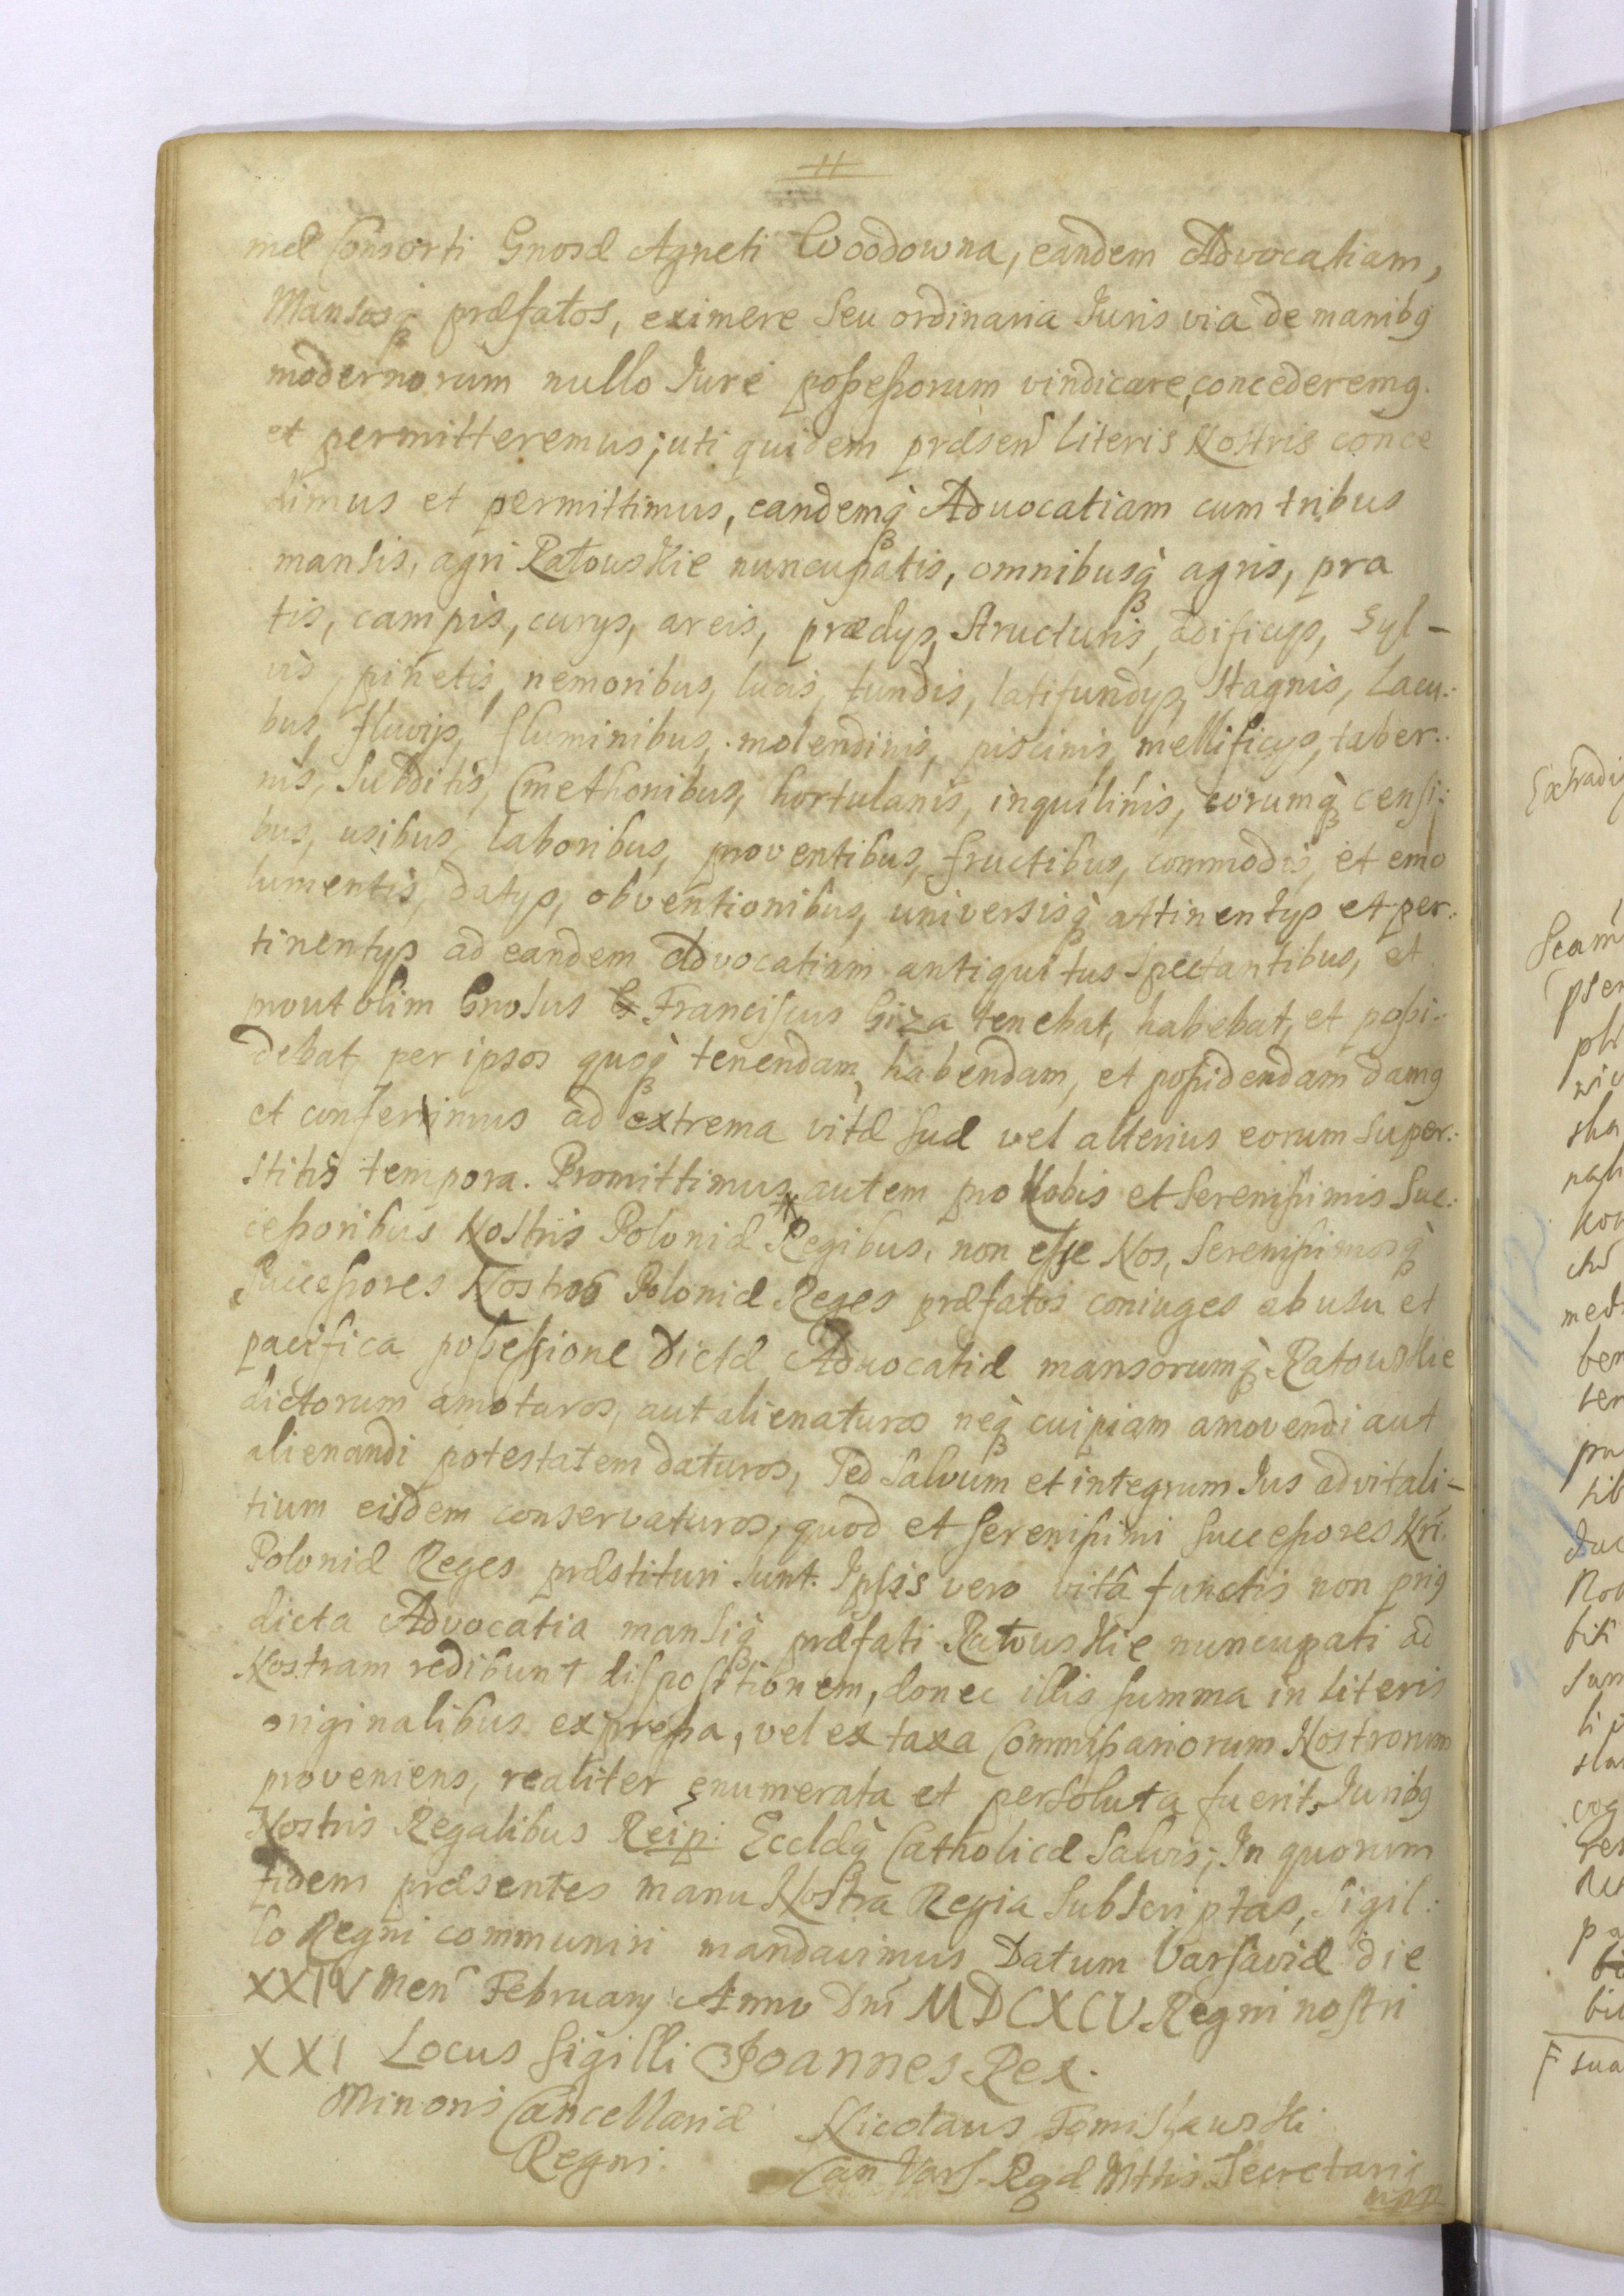 11
mæ Consorti Gnosæ Agneti Woodowna, eandem Advocatiam,
Mansosq; præfatos, eximere seu ordinaria Juris via de manibq
modernorum nullo Jure poßeßorum vindicare, concederemq.
et permitteremus; uti quidem præsen literis Nostris conce
dimus et permittimus, eandemq; Advocatiam cum tribus
mansis, agri Ratouskie nuncupatis, omnibusq; agris, pra
tis, campis, curys, areis, prædys, structuris, ædificys, Syl-
vis, pinetis, nemoribus, lucis, fundis, latifundys, stagnis, Lacu:
bus, fluvijs, fluminibus, molendinis, piscinis, mellificys, taber:
nis, Subditis, Cmethonibus, hortulanis, inquilinis, eorumq; censi:
bus, usibus, laboribus, proventibus, fructibus, commodis, et emo
lumentis, datys, obventionibus, universisq; attinentys et per:
tinentys ad eandem Advocatiam antiquitus spectantibus, et
prout olim Gnosus Franciscus Giza tenebat, habebat, et poßi:
debat, per ipsos quoq; tenendam, habendam, et poßidendam damq
et conferimus ad extrema vitæ suæ vel alterius eorum super:
stitis tempora. Promittimus autem pro Nobis et Serenißimis Suc:
ceßoribus Nostris Poloniæ Regibus, non esse Nos, Serenißimosq;
Succeßores Nostros Poloniæ Reges præfatos coniuges ab usu et
pacifica poßeßione dictæ Advocatiæ mansorumq; Ratouskie
dictorum amoturos, aut alienaturos neq; cuipiam amovendi aut
alienandi potestatem daturos, Sed Salvum et integrum Jus advitali-
tium eisdem conservaturos, quod et Serenißimi Succeßores Nri.
Poloniæ Reges præstituri sunt. Ipsis vero vitâ functis non priq
dicta Advocatia mansiq; præfati Ratouskie nuncupati ad
Nostram redibunt dispositionem, donec illis summa in literis
originalibus expreßa, vel ex taxa Commißariorum Nostrorum
proveniens, realiter enumerata et persoluta fuerit, Juribq
Nostris Regalibus Reip: Eccldq; Catholicæ Salvis; In quorum
fidem præsentes manu Nostra Regia Subscriptas, Sigil:
lo Regni communiri mandavimus Datum Varsaviæ die
XXIV Men Februarij Anno Dni MDCXCV Regni nostri
XXI Locus Sigilli Joannes Rex.
Minoris Cancellariæ Nicolaus Tomisławski
Regni. Can Vars. Rgæ Mttis Secretariq
mpp